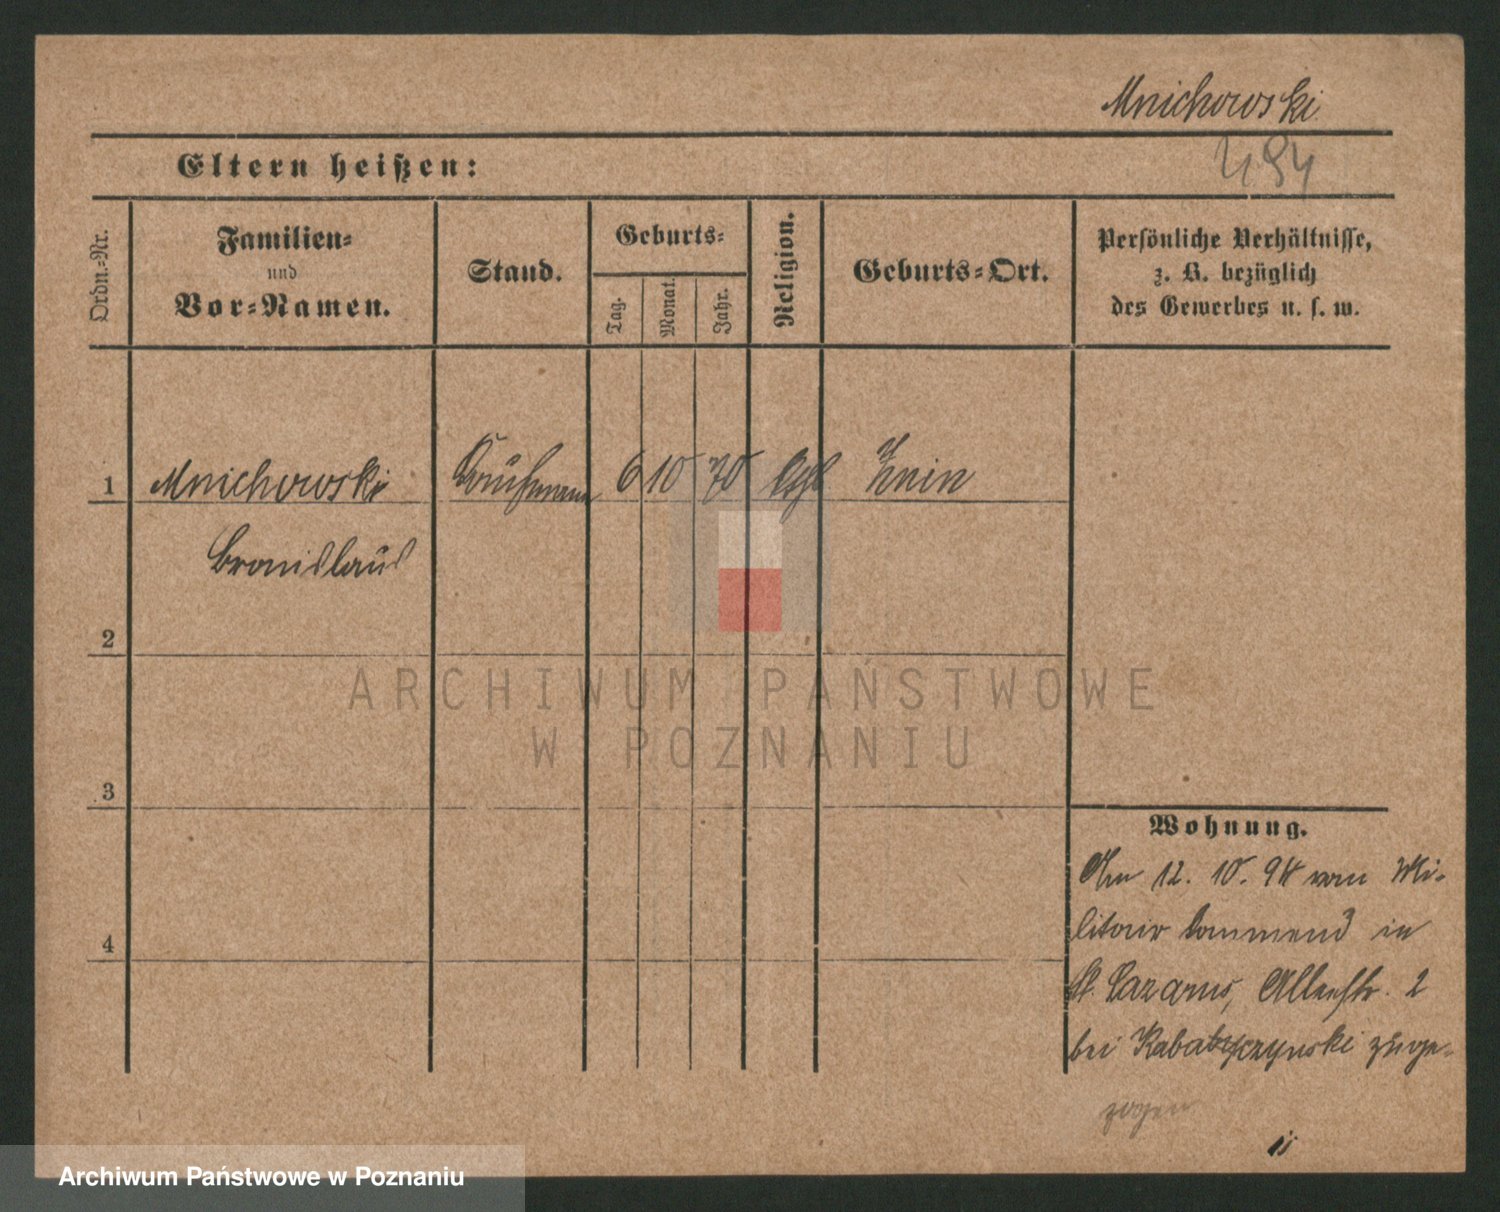 Mnichowski
Eltern heißen:
Ordn.-Nr.
Familien-
und
Vor-Namen.
Stand.
Geburts-
Tag.
Monat.
Jahr.
Religion.
Geburts-Ort.
Persönliche Verhältnisse,
z. B. bezüglich
des Gewerbes u. s. w.
1 Mnichowski Kaufmann 6 10 70 kath Znin
Bronislaus
2
3
4
Wohnung.
Am 12. 10. 94 vom Mi-
litair Commando in
St. Lazarus, Alleestr. 2
bei zuge-
zogen
ARCHIWUM PAŃSTWOWE
W POZNANIU
Archiwum Państwowe w Poznaniu